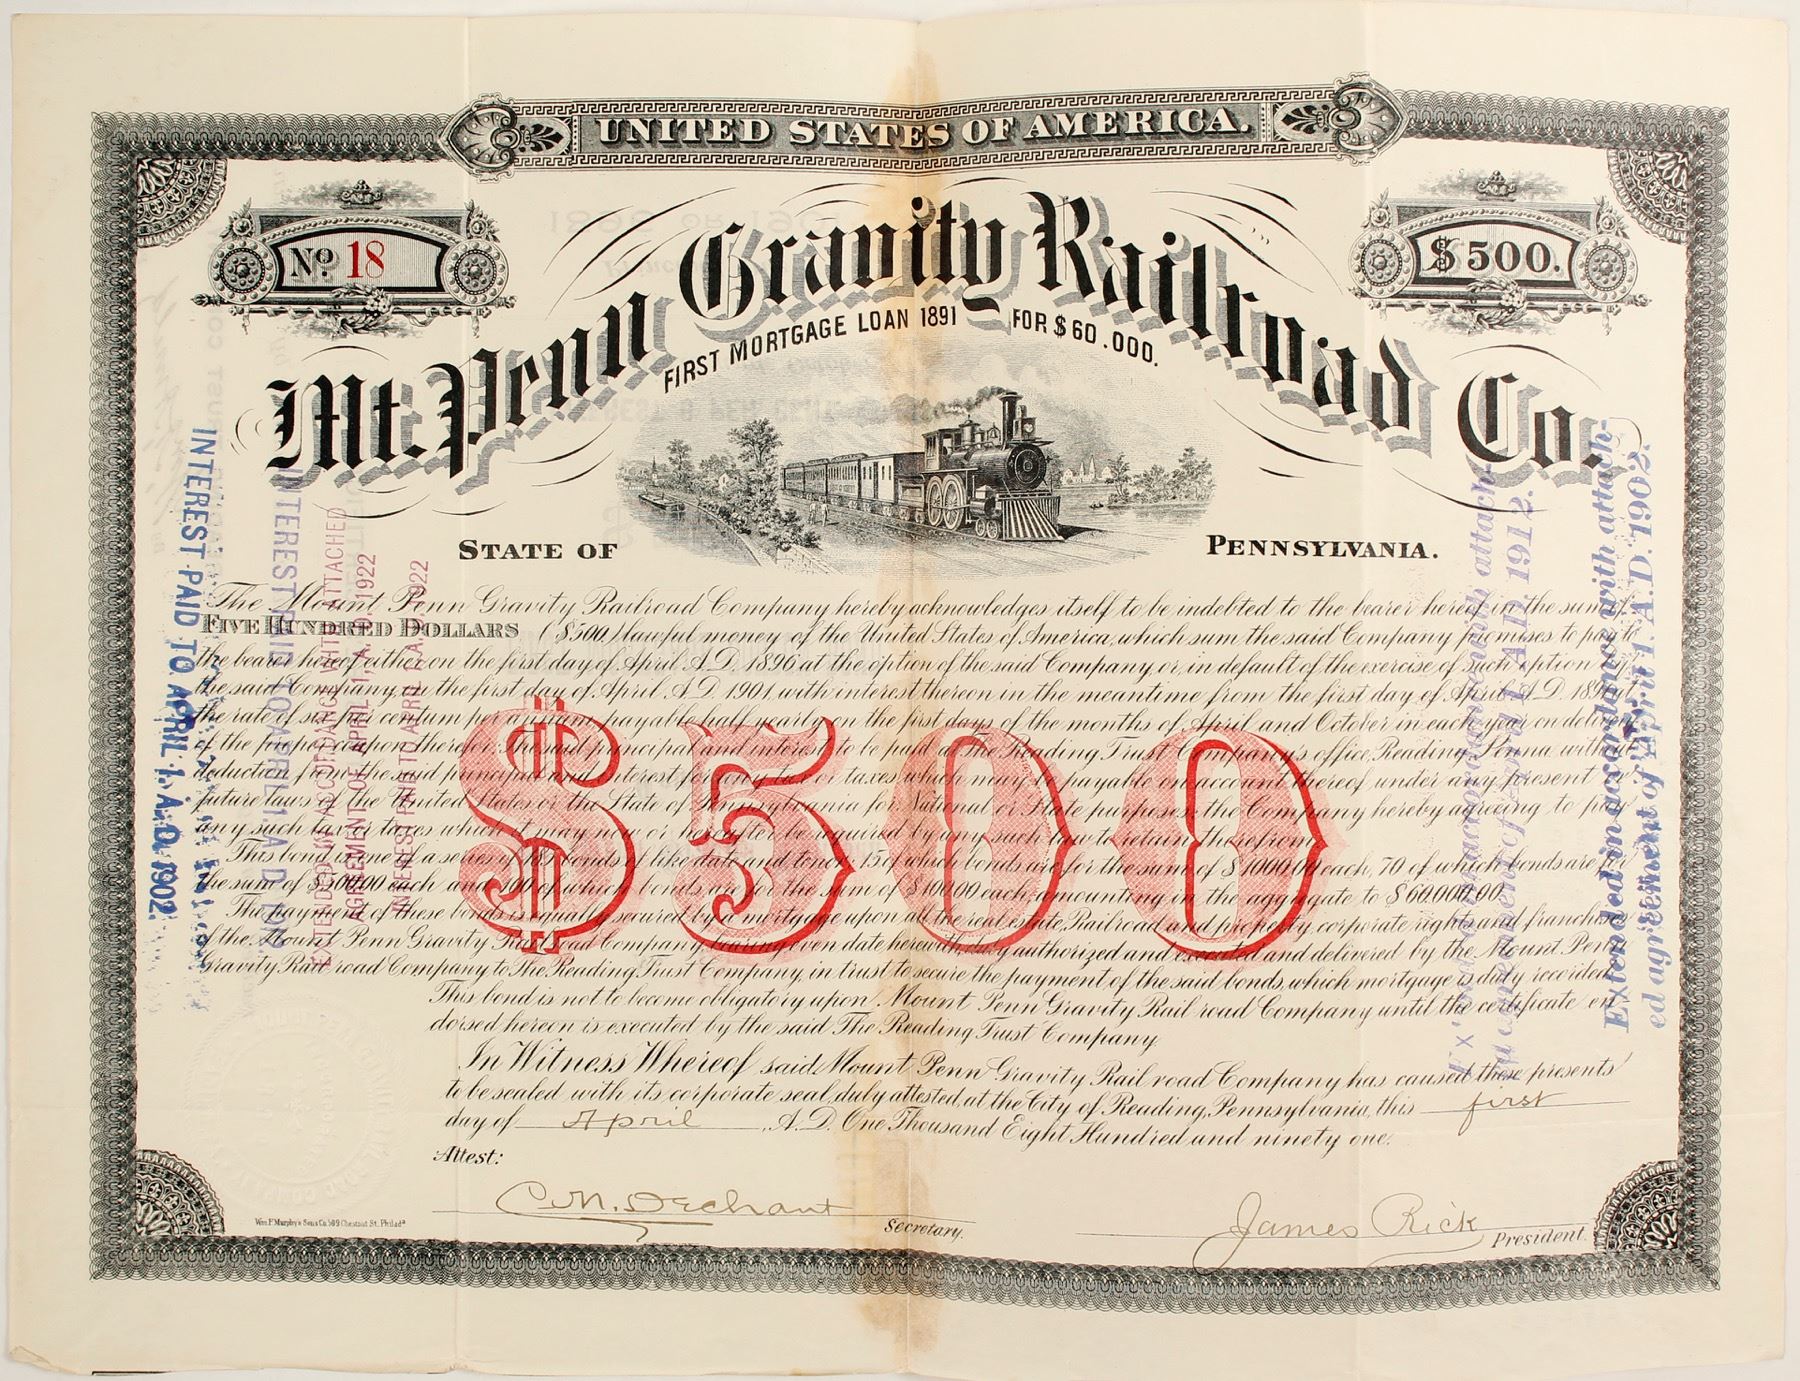 UNITED STATES OF AMERICA.
No. 18
$500.
Mt. Penn Gravity Railroad Co.
FIRST MORTGAGE LOAN 1891 FOR $60.000.
STATE OF PENNSYLVANIA.
The Mount Penn Gravity Railroad Company hereby acknowledges itself to be indebted to the bearer hereof in the sum of
FIVE HUNDRED DOLLARS ($500) lawful money of the United States of America, which sum the said Company promises to pay to
the bearer hereof either on the first day of April A.D. 1896 at the option of the said Company or, in default of the exercise of such option by
the said Company, on the first day of April A.D. 1901, with interest thereon in the meantime from the first day of April A.D. 1891 at
the rate of six per centum per annum, payable half yearly on the first days of the months of April and October in each year on delivery
of the proper coupon therefor; The said principal and interest to be paid at The Reading Trust Company's office, Reading, Penna without
deduction from the said principal and interest for any tax or taxes which may be payable on account thereof under any present or
future laws of the United States or the State of Pennsylvania for National or State purposes, the Company hereby agreeing to pay
any such tax or taxes which it may now or hereafter be required by any such law to retain therefrom.
This bond is one of a series of 185 bonds of like date and tenor, 15 of which bonds are for the sum of $1000.00 each, 70 of which bonds are for
the sum of $500.00 each and 100 of which bonds are for the sum of $100.00 each, amounting in the aggregate to $60.000.00.
The payment of these bonds is equally secured by a mortgage upon all the real estate, Railroad and property, corporate rights and franchises
of the Mount Penn Gravity Railroad Company bearing even date herewith, duly authorized and executed and delivered by the Mount Penn
Gravity Railroad Company to The Reading Trust Company, in trust to secure the payment of the said bonds, which mortgage is duly recorded.
This bond is not to become obligatory upon Mount Penn Gravity Railroad Company until the certificate en
dorsed hereon is executed by the said The Reading Trust Company.
In Witness Whereof said Mount Penn Gravity Railroad Company has caused these presents
to be sealed with its corporate seal, duly attested, at the City of Reading, Pennsylvania, this first
day of April, A.D. One Thousand Eight Hundred and ninety one.
$500
Attest:
C. N. Dechant
Secretary.
James Rick
President.
Wm. F. Murphy's Sons Co. 509 Chestnut St. Philada
INTEREST PAID TO APRIL 1, A.D. 1902.
EXTENDED IN ACCORDANCE WITH ATTACHED
AGREEMENT OF APRIL 1, A.D. 1922
INTEREST PAID TO APRIL 1, A.D. 1922
Extended in accordance with attach-
ed agreement of April 1, A.D. 1912.
Extended in accordance with attach-
ed agreement of April 1, A.D. 1902.